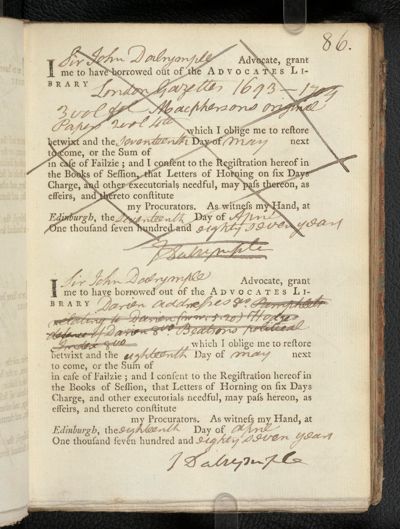 86.
I Sir John Dalrymple Advocate, grant
me to have borrowed out of the ADVOCATES LI-
BRARY London Gazettes 1693—1703
3 vol fol Macphersons original
Papers 2 vol 4to which I oblige me to restore
betwixt and the Seventeenth Day of May next
to come, or the Sum of
in caſe of Failzie; and I conſent to the Regiſtration hereof in
the Books of Seſſion, that Letters of Horning on ſix Days
Charge, and other executorials needful, may paſs thereon, as
effeirs, and thereto conſtitute
my Procurators. As witneſs my Hand, at
Edinburgh, the Seventeenth Day of April
One thouſand ſeven hundred and eighty seven years
J Dalrymple
I Sir John Dalrymple Advocate, grant
me to have borrowed out of the ADVOCATES LI-
BRARY Darien addresses 8vo. Pamphlets
relating to Darien
of Darien 8vo Beatsons political
Index 8vo which I oblige me to reſtore
betwixt and the eighteenth Day of May next
to come, or the Sum of
in caſe of Failzie; and I conſent to the Regiſtration hereof in
the Books of Seſſion, that Letters of Horning on ſix Days
Charge, and other executorials needful, may paſs hereon, as
effeirs, and thereto conſtitute
my Procurators. As witneſs my Hand, at
Edinburgh, the eighteenth Day of April
One thouſand ſeven hundred and eighty seven years
J Dalrymple